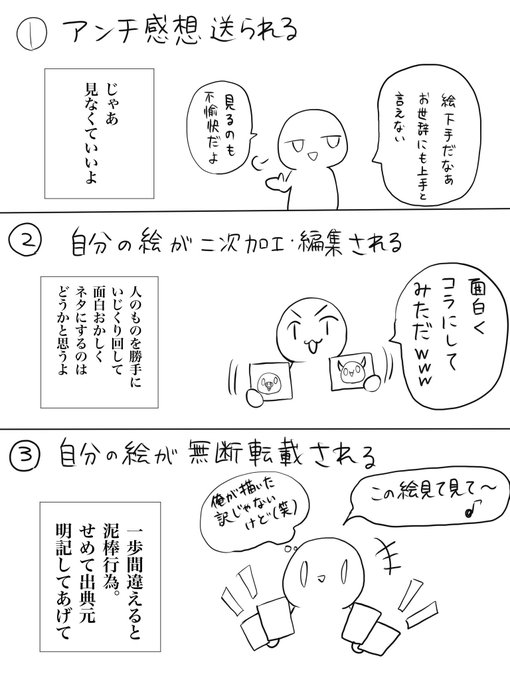 ① アンチ感想送られる
絵下手だなあ
お世辞にも上手と
言えない
見るのも
不愉快だよ
じゃあ
見なくていいよ
② 自分の絵が二次加工・編集される
面白く
コラにして
みただwww
人のものを勝手に
いじくり回して
面白おかしく
ネタにするのは
どうかと思うよ
③ 自分の絵が無断転載される
この絵見て見て〜♪
俺が描いた
訳じゃない
けど(笑)
一歩間違えると
泥棒行為。
せめて出典元
明記してあげて